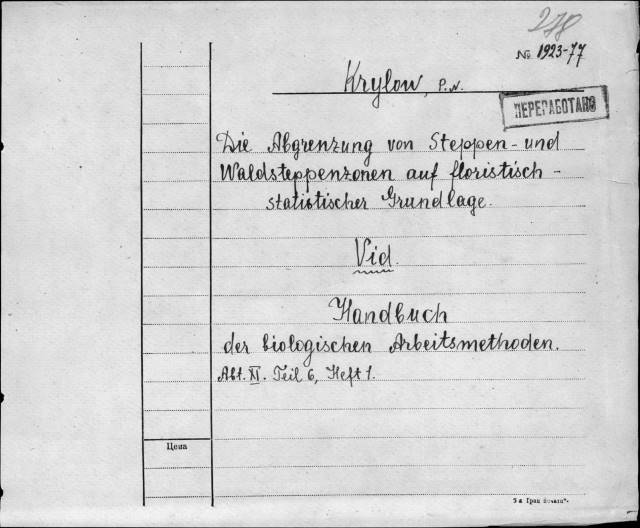 278
№ 1923-77
Krylow, P.N.
ПЕРЕРАБОТАНО
Die Abgrenzung von Steppen- und
Waldsteppenzonen auf floristisch-
statistischer Grundlage.
Vid.
Handbuch
der biologischen Arbeitsmethoden.
Abt. XI. Teil 6, Heft 1.
Цена